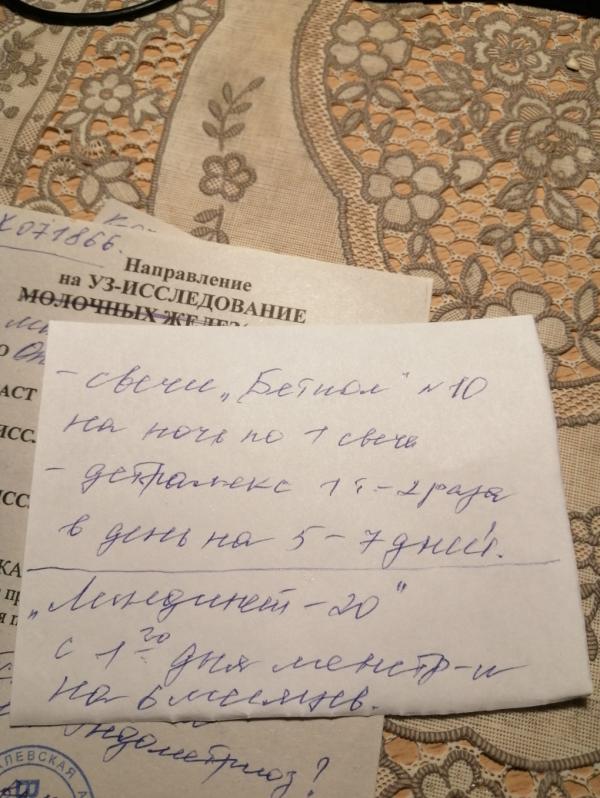 X071866.
Направление
на УЗ-ИССЛЕДОВАНИЕ
МОЛОЧНЫХ ЖЕЛЕЗ
- свечи „Бетиол" №10
на ночь по 1 свече
- детралекс 1т - 2 раза
в день на 5-7 дней.
„Линдинет-20"
с 1го дня менстр-и
на 6 месяцев.
Эндометриоз?